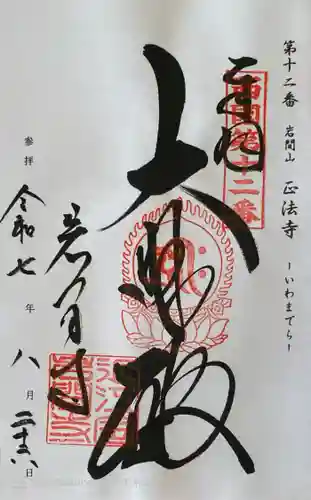 第十二番 岩間山 正法寺 ーいわまでらー
奉拝
西国第十二番
大悲殿
岩間寺
参拝 令和七年八月二十六日